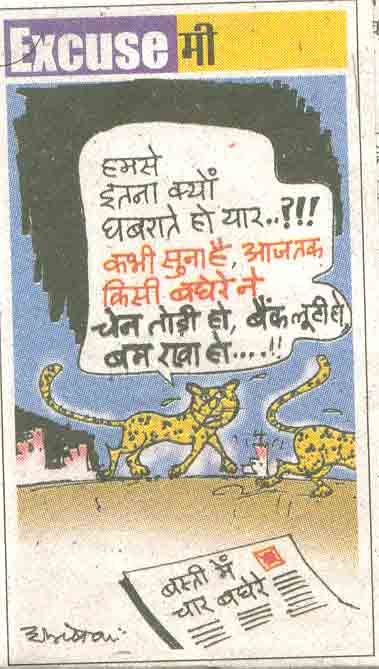 Excuse मी
हमसे
इतना क्यों
घबराते हो यार..?!!!
कभी सुना है, आजतक
किसी बघेरे ने
चेन तोड़ी हो, बैंक लूटी हो,
बम रखा हो....!!
बस्ती में
चार बघेरे